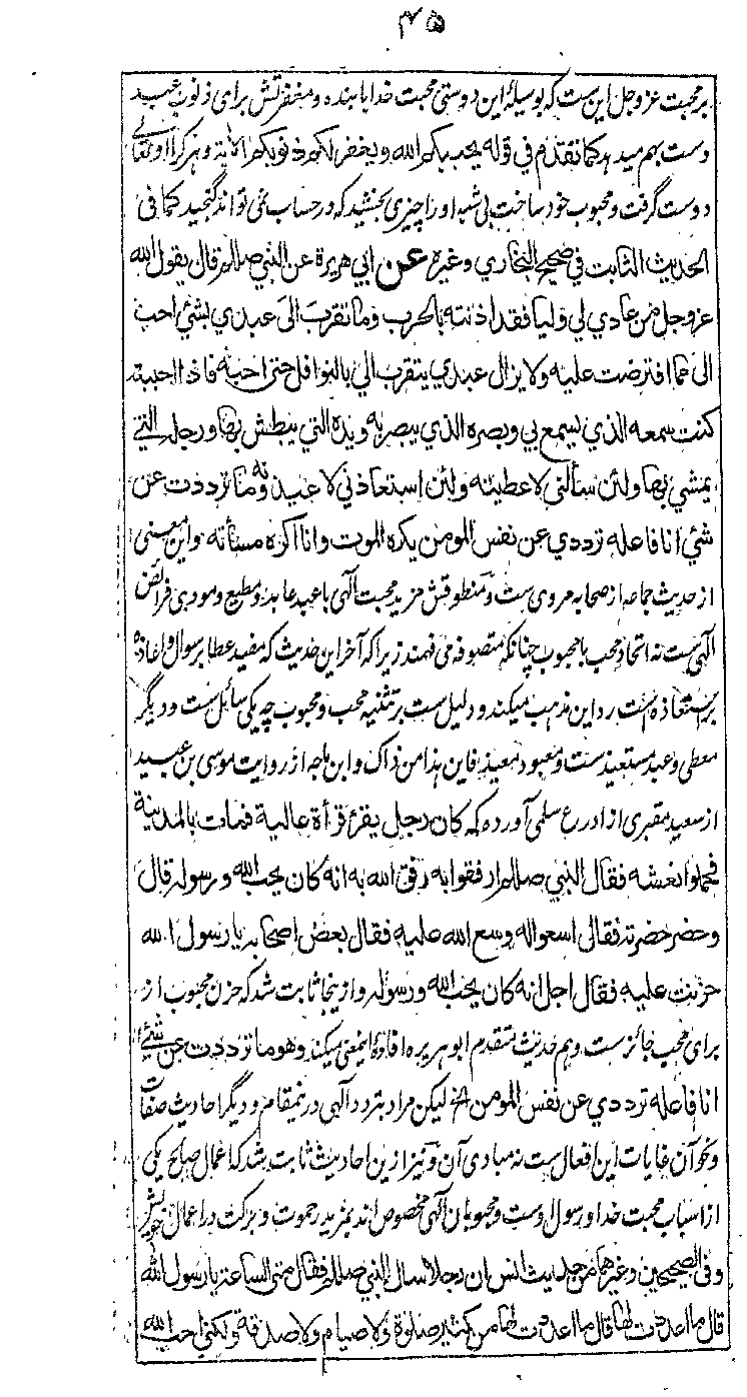 ۴۵
بر محبت عزوجل این ست که بوسیلهٔ این دوستی محبت خدا با بنده و مغفرتش برای ذنوب عبید
دست بهم میدهد کما تقدم فی قوله یحببکم الله ویغفر لکم ذنوبکم الآیة وهر کرا او تعالی
دوست گرفت و محبوب خود ساخت بی شبه او را چیزی بخشید که در حساب نمی تواند گنجید کما فی
الحدیث الثابت فی صحیح البخاري وغیره عن ابي هریرة عن النبي صلالم قال یقول الله
عزوجل من عادي لي ولیا فقد اذنته بالحرب وما تقرب الی عبدي بشئ احب
الی مما افترضت علیه ولا یزال عبدي یتقرب الي بالنوافل حتی احبه فاذا احببته
کنت سمعه الذي یسمع بي وبصره الذي یبصر به ویده التي یبطش بها ورجله التي
یمشي بها ولئن سألني لاعطیته ولئن استعاذني لاعیذنه وما ترددت عن
شئ انا فاعله ترددي عن نفس المومن یکره الموت وانا اکره مسأته واین معنی
از حدیث جماعه از صحابه مروی ست و منطوقش مزید محبت الٰهی با عبد عابد و مطیع و مودی فرائض
الٰهی ست نه اتحاد محب با محبوب چنانکه متصوفه می فهمند زیرا که آخر این حدیث که مفید عطا بر سوال و اعاذه
بر استعاذه است رد این مذهب میکند و دلیل ست بر تثنیه محب و محبوب چه یکی سائل ست و دیگر
معطی و عبد مستعیذ ست و معبود معیذ فاین هذا من ذاک و ابن ماجه از روایت موسی بن عبید
از سعید مقبری از ادرع سلمی آورده که کان رجل یقرئ قرأة عالیة فمات بالمدینة
فحملوا نعشه فقال النبي صلالم ارفقوا به رفق الله به انه کان یحب الله ورسوله قال
وحضر حضرته فقال اوسعوا له وسع الله علیه فقال بعض اصحابه یا رسول الله
حزنت علیه فقال اجل انه کان یحب الله ورسوله و ازینجا ثابت شد که حزن محبوب از
برای محب جائز ست و هم حدیث متقدم ابو هریره افادهٔ اینمعنی میکند وهو ما ترددت عن شئ
انا فاعله ترددي عن نفس المومن الخ لیکن مراد بتردد الٰهی درینمقام و دیگر احادیث صفات
و نحو آن غایات این افعال ست نه مبادی آن و نیز ازین احادیث ثابت شد که اعمال صالح یکی
از اسباب محبت خدا و رسول اوست و محبوبان الٰهی مخصوص اند بمزید رحموت و برکت در اعمال خویش
وفی الصحیحین وغیرهما من حدیث انس ان رجلا سأل النبي صلالم فقال متی الساعة یا رسول الله
قال ما اعددت لها قال ما اعددت لها من کثیر صلوة ولا صیام ولا صدقة ولکني احب الله